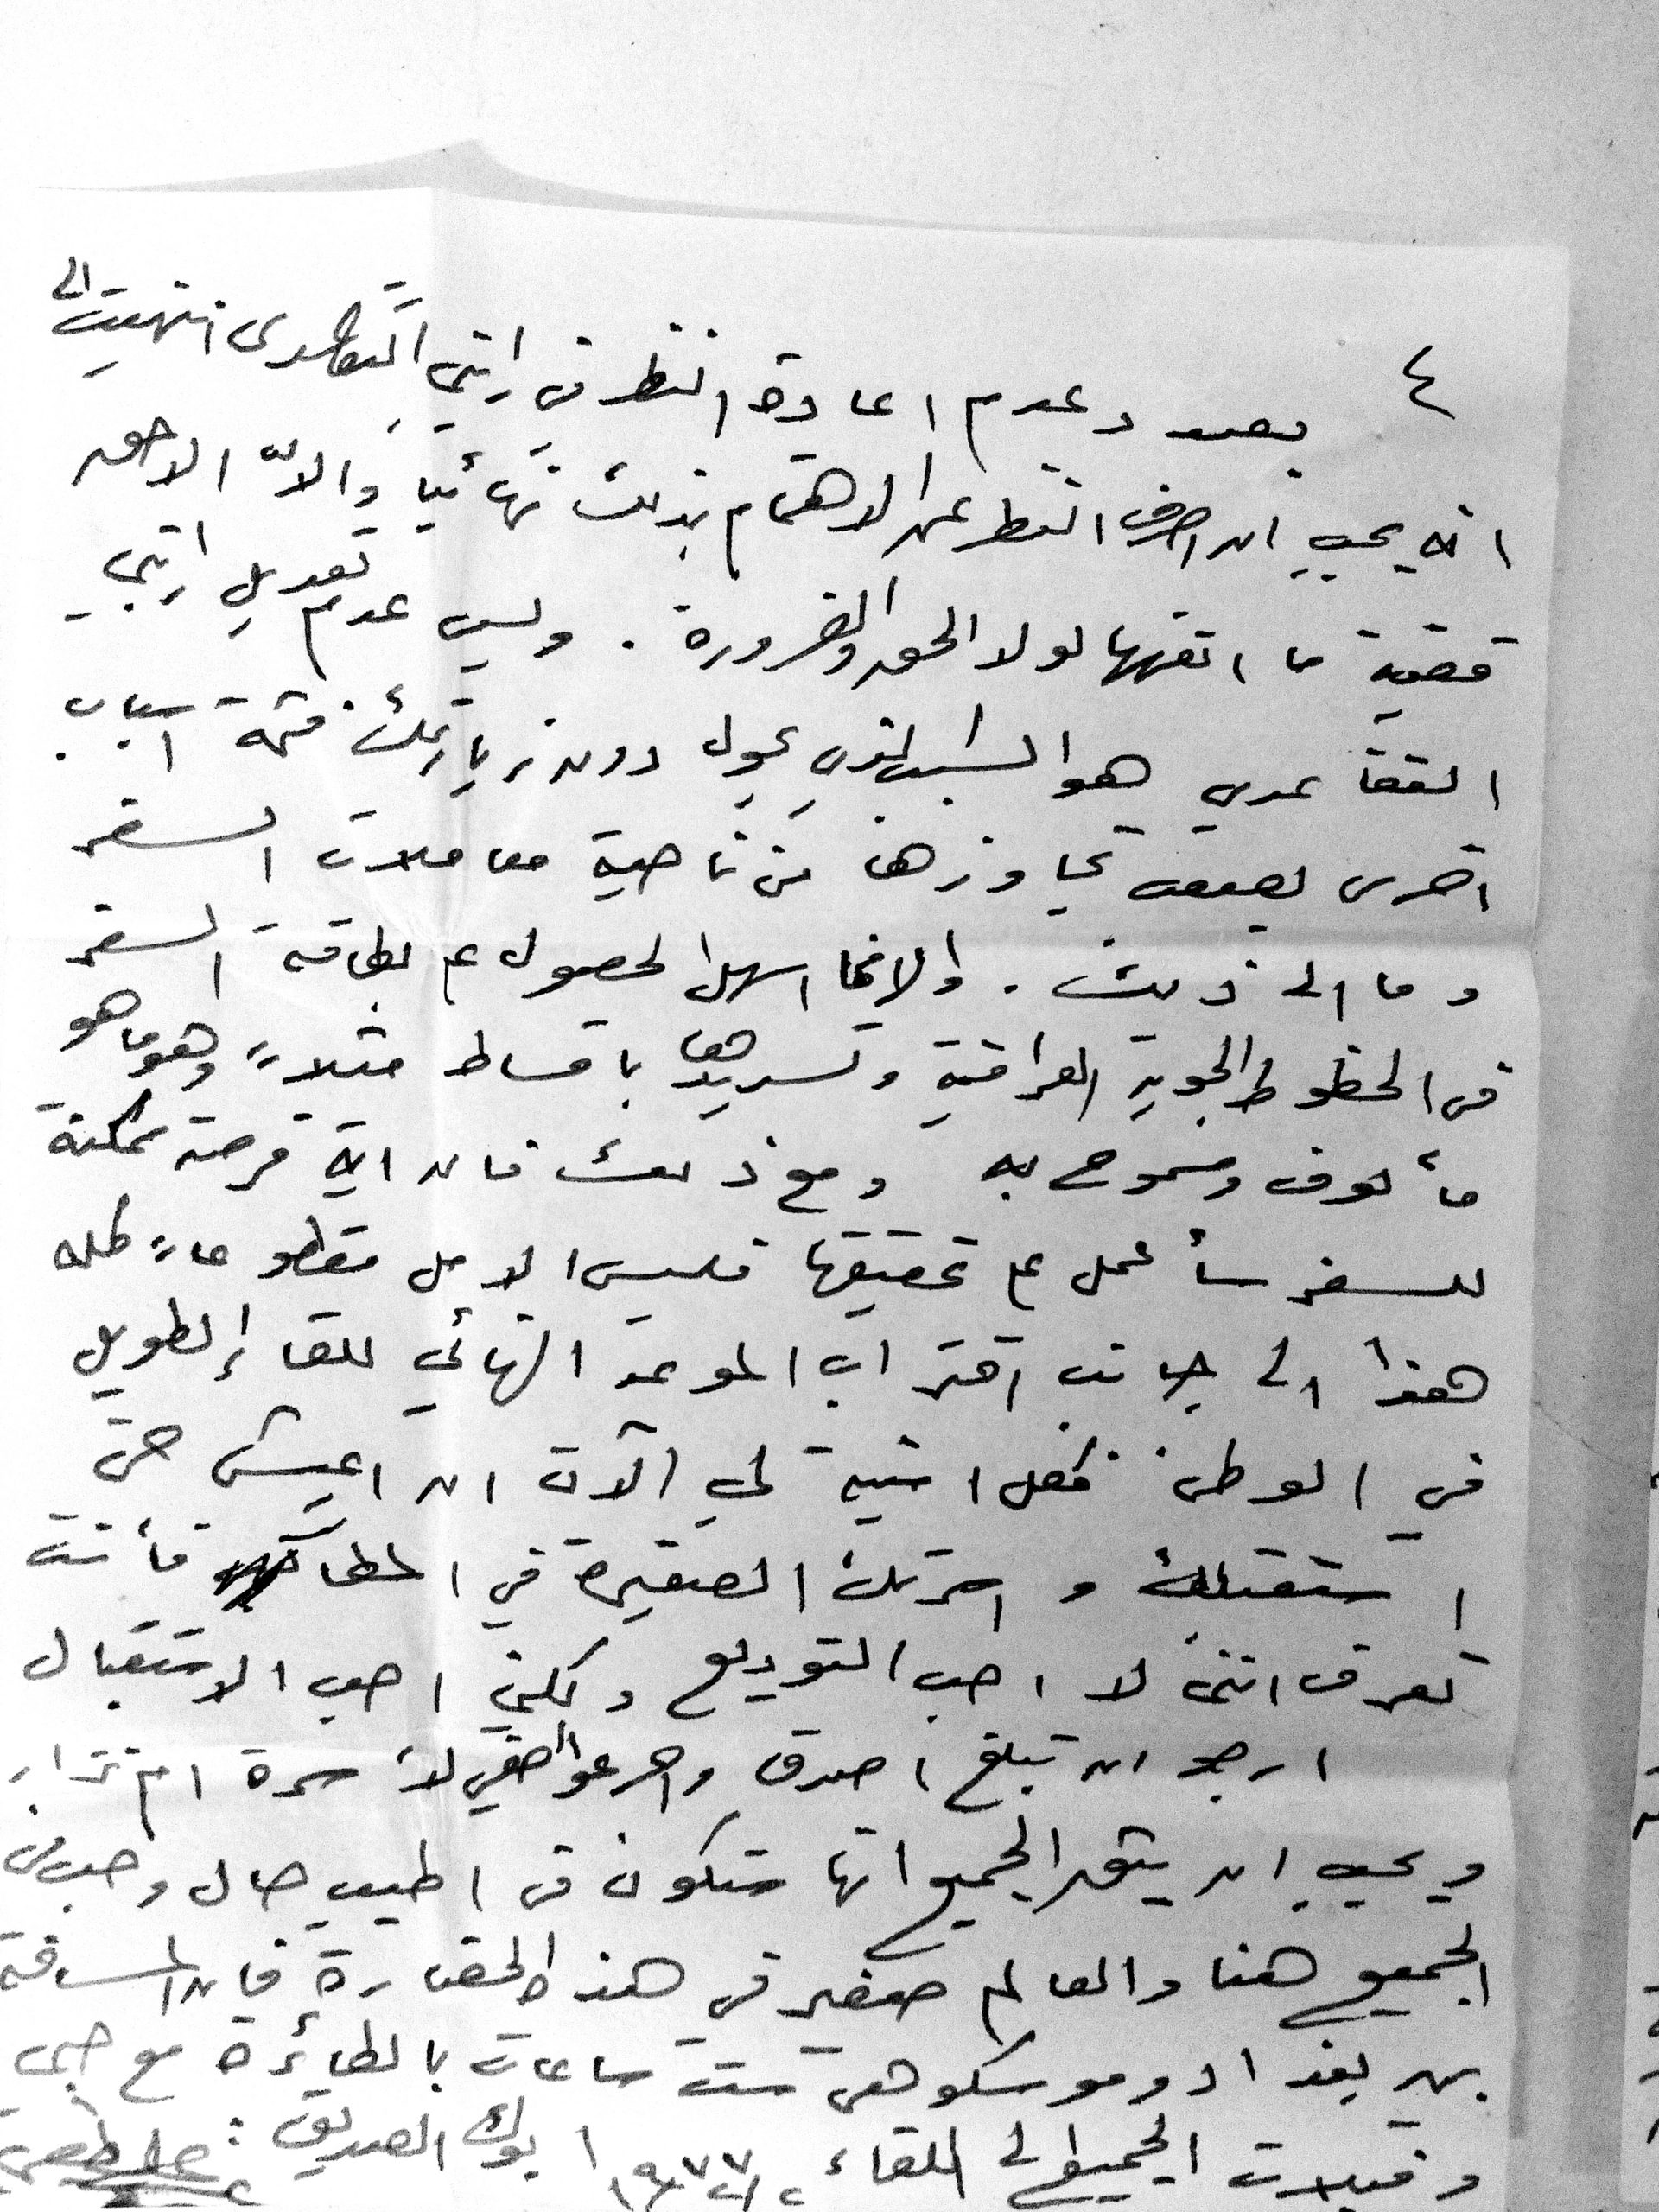 ٤
بصدد عدم اعادة النظر في راتبي التقاعدي انتهيت الى
انه يجب ان اصرف النظر عن الاهتمام بذلك نهائياً والا الاحق
قضية ما اتفهها لولا الحق والضرورة . وليس عدم تعديل راتبي
التقاعدي هو السبب الذي يحول دون زيارتك فثمة اسباب
اخرى يصعب تجاوزها من ناحية معاملات السفر
وما الى ذلك . والا فما اسهل الحصول على بطاقة السفر
في الخطوط الجوية العراقية وتسديدها باقساط مثلاً وهو ما هو
مألوف ومسموح به ومع ذلك فان اية فرصة ممكنة
للسفر سأعمل على تحقيقها فليس الامل مقطوعاً كله
هذا الى جانب اقتراب الموعد النهائي للقاء الطويل
في الوطن فكل امنية لي الآن ان اعيش حتى
استقبلك واسرتك الصغيرة في المطار فأنت
تعرف انني لا احب التوديع ولكني احب الاستقبال
ارجو ان تبلغ اصدق واحر عواطفي لأسرة ام نزار
ويجب ان يثق الجميع انها ستكون في اطيب حال وحب من
الجميع هنا والعالم صغير في هذه الحضارة فان المسافة
بين بغداد وموسكو هي ست ساعات بالطائرة مع حبي
وقبلات الجميع الى اللقاء ابوك الصديق :